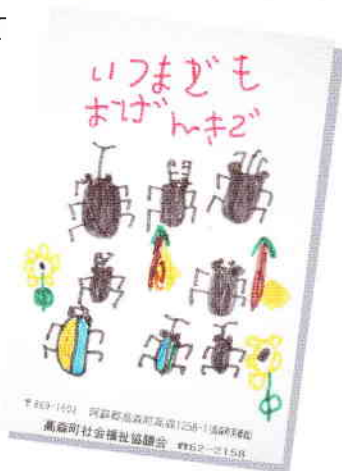 いつまでも
おげんきで
〒869-1602 阿蘇郡高森町高森1258-1
高森町社会福祉協議会 ☎62-2158